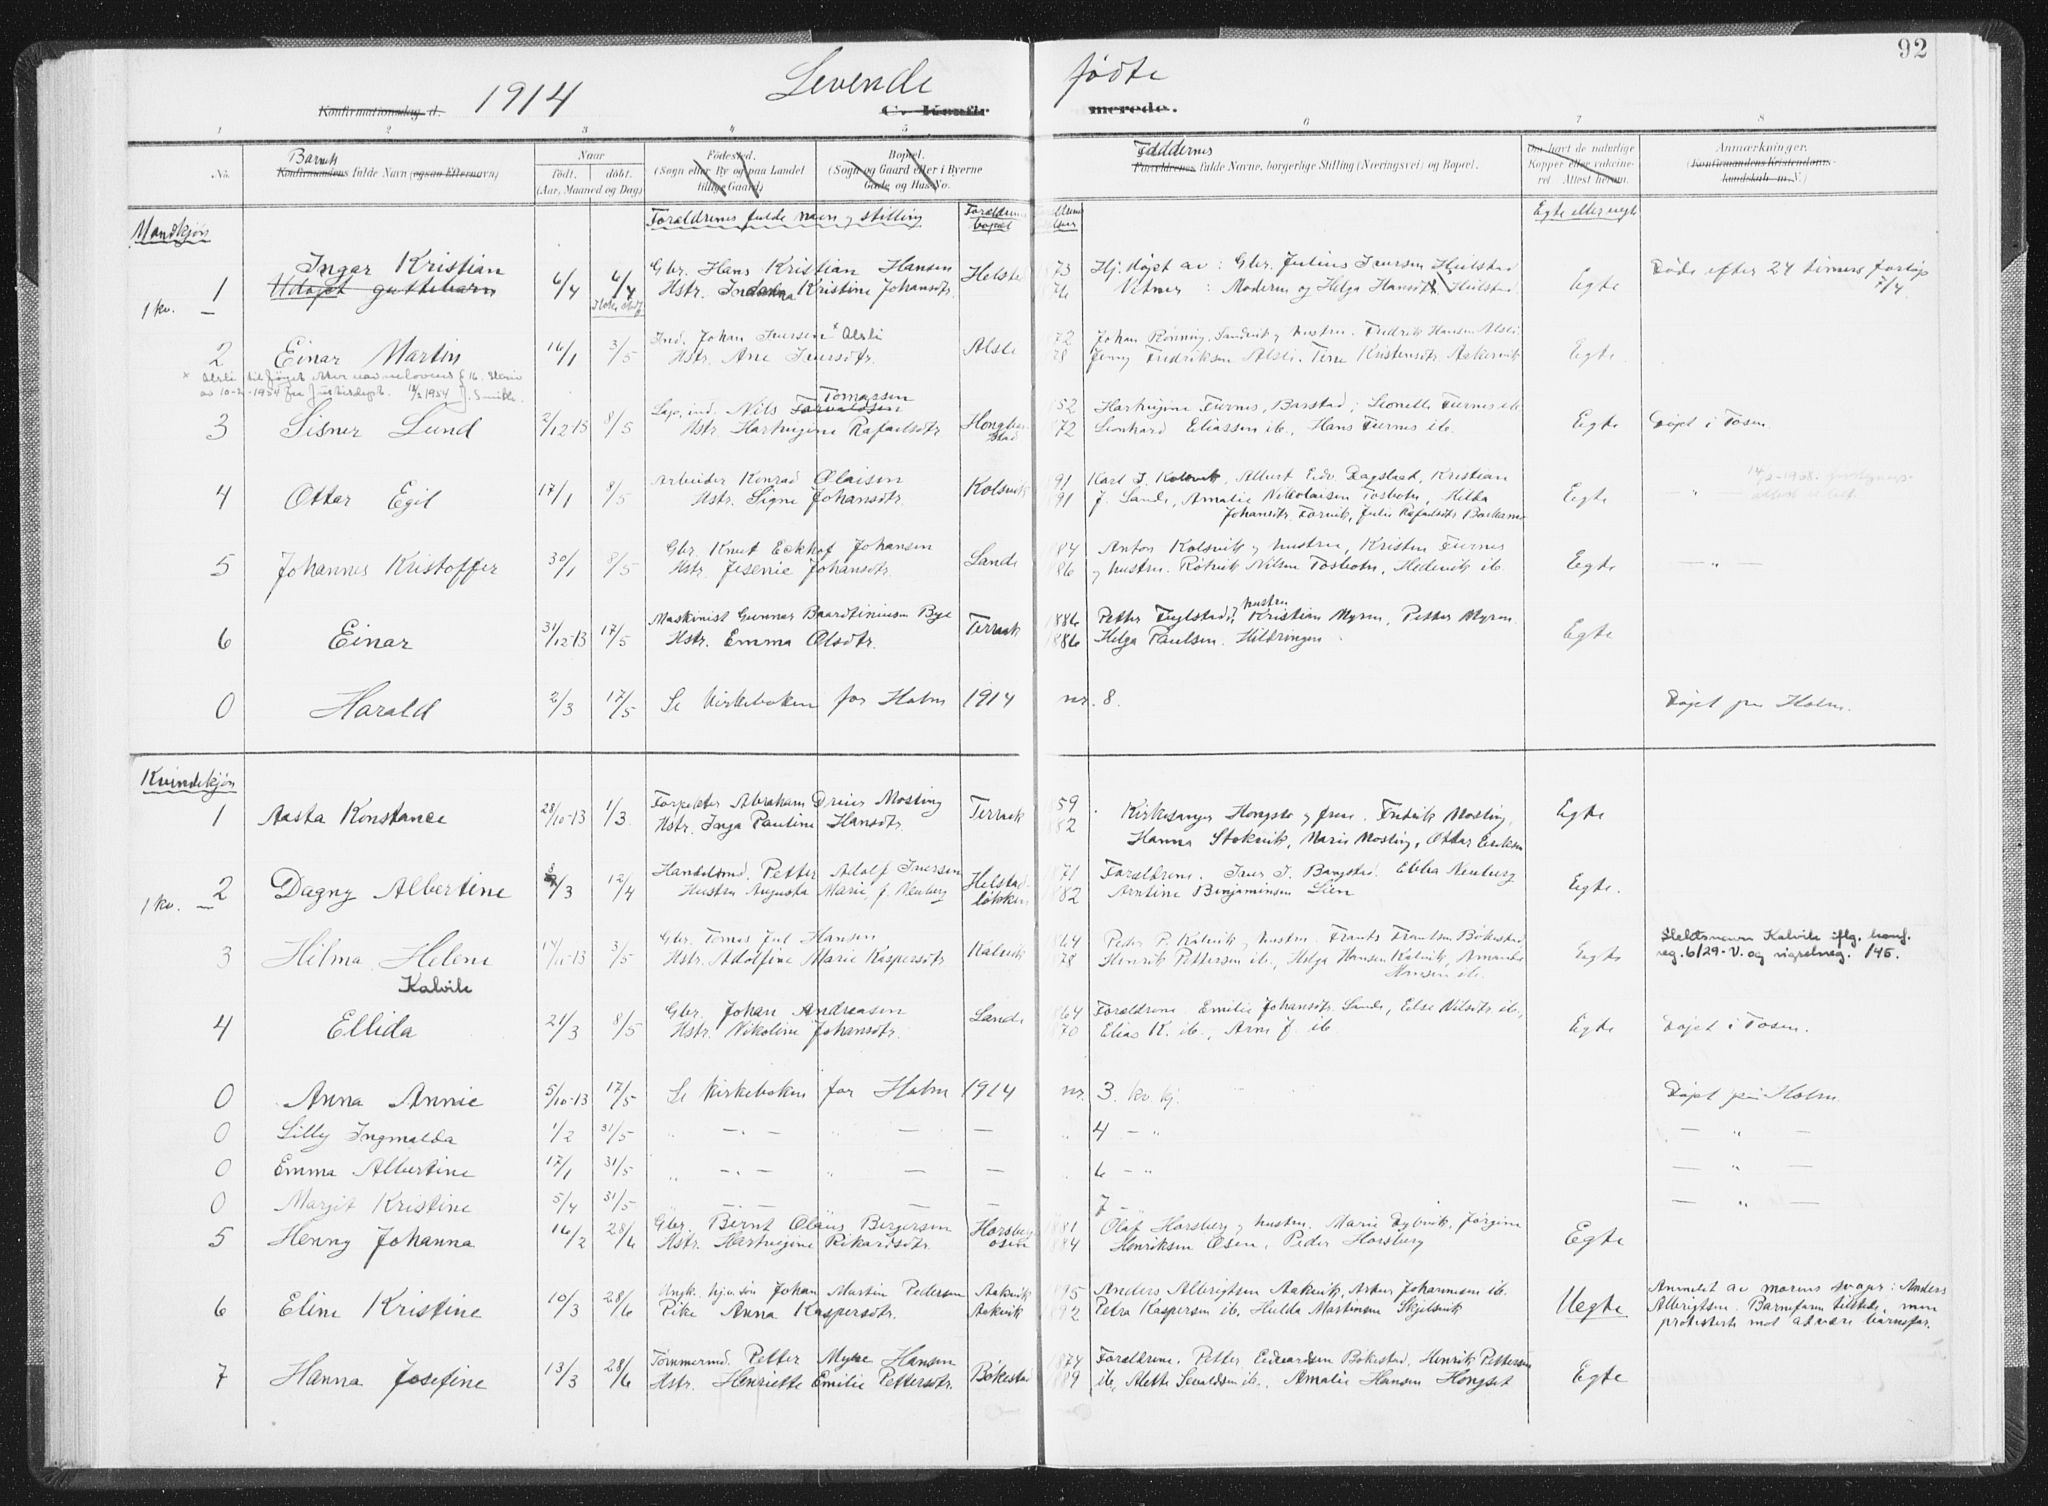 92
1914 Levende fødte
Konfirmationsdag d.
merede.
1 2 3 4 5 6 7 8
No.
Barnets
Konfirmandens fulde Navn (ogsaa Efternavn)
Naar
født. døbt.
(Aar, Maaned og Dag)
Fødested.
(Sogn eller By og paa Landet
tillige Gaard)
Bopæl.
(Sogn og Gaard eller i Byerne
Gade og Hus No.
Faddernes
Forældrenes fulde Navne, borgerlige Stilling (Næringsvei) og Bopæl.
Om havt de naturlige
Kopper eller vaccine-
ret. Attest herom.
Anmærkninger.
(Konfirmandens Kristendoms-
kundskab m. V.)
Mandkjøn
Forældrenes fulde navn og stilling
Forældrenes
bopæl
Egte eller uegte
1 kv.
1 Ingar Kristian
Udøpt guttebarn
6/4 6/4
Gbr. Hans Kristian Hansen
Hstr. Kristine Johansdtr.
Helstad
73
76
Hj. døpt av: Gbr. Julius Iversen Heilstad
Vitner: Moderen og Helga Hansdtr. Heilstad
Egte
Døde efter 24 timers forløp
7/4.
2 Einar Martin
16/1 3/5
Ind. Johan Iversen x Alsli
Hstr. Ane Iversdtr.
Alsli
72
78
Johan Rønning, Sandvik og hustru. Fredrik Hansen Alsli
Jenny Fredriksen Alsli. Trine Kristensdtr. Aakervik
Egte.
x Alsli tilføyet etter navnelovens § 16. Skriv
av 10-2-1954 fra Justisdept. 12/2 1954
3 Sisner Lund
2/12-13 8/5
Tomassen
Nils Torvaldsen
Hstr. Hartvigine Rafaelsdtr
Hongbarstad
52
872
Hartvigine Tiernes, Barstad; Leonelle Tiernes ib.
Leonhard Eliassen ib., Hans Tiernes ib.
Egte
Døpt i Tosen.
4 Ottar Egil
17/1 8/5
Arbeider Konrad Olaisen
Hstr. Signe Johansdtr.
Kolsvik
91
91
Karl J. Kolsvik, Albert Edv. Dagslad, Kristian
J. Lande, Amalie Nikolaisen Tosbotn, Hilda
Johansdtr. Torvik, Julie Rafaelsdtr. Barkarnes
Egte
— „ —
5 Johannes Kristoffer
30/1 8/5
Gbr. Knut Eckhof Johansen
Hstr. Jesenie Johansdtr.
Lande
884
886
Anton Kolsvik og hustru, Kristen Tiernes
og hustru. Rørvik Nilsen Tosbotn, Hedevik ib.
Egte
— „ —
6 Einar
31/12-13 17/5
Maskinist Gunnar Baardtinusen Bye
Hstr. Emma Olsdtr.
Terraak
1886
1886
Petter Fuglstad og hustru Kristian Myrm, Petter Myrm.
Helga Paulsen. Hildringen.
Egte
0 Harald
2/3 17/5
Se Kirkeboken for Holm 1914 nr. 8.
Døpt paa Holm.
Kvindekjøn
1 Aasta Konstance
28/10-13 1/3
Forpakter Abraham Dreier Mosling
Hstr. Inga Pauline Hansdtr.
Terraak
859
882
Kirkesanger Hongslo og frue. Fredrik Mosling,
Hanna Stokvik, Marie Mosling, Ottar Eriksen
Egte
1 kv.
2 Dagny Albertine
8/3 12/4
Handelsmd. Petter Adolf Iversen
Hustru Augusta Marie, f. Neuberg
Helstad-
løkken
871
882
Forældrene. Iver J. Bangstad. Ebba Neuberg
Arntine Benjaminsen Lien
Egte.
3 Hilma Helene
Kalvik
14/11-13 3/5
Gbr. Tomas Jul Hansen
Hstr. Adolfine Marie Kaspersdtr
Kalvik
864
878
Peder P. Kalvik og hustru. Frants Frantsen Bøkestad,
Henrik Pettersen ib., Helga Hansen Kalvik, Amanda
Hansen ib.
Egte
Slektsnavn Kalvik iflg. konf.
reg. 6/29-V. og vigselreg. 1/45.
4 Ellida
21/3 8/5
Gbr. Johan Andreasen
Hstr. Nikoline Johansdtr.
Lande
864
870
Forældrene. Emilie Johansdtr. Lande, Else Nilsdtr. ib.,
Elias K. ib., Arne J. ib
Egte
Døpt i Tosen.
0 Anna Annie
5/10-13 17/5
Se Kirkeboken for Holm 1914 nr. 3. kv. kj.
Døpt på Holm
0 Lilly Ingmalda
1/2 31/5
„ — „ — „ — — „ 4 — „
— „ —
0 Emma Albertine
17/1 31/5
„ — „ — „ — — „ 6 — „
— „ —
0 Marjit Kristine
5/4 31/5
7
— „ —
5 Henny Johanna
16/2 28/6
Gbr. Bernt Olaus Bergersen
Hstr. Hartvigine Rikardsdtr.
Horsberg-
osen
1881
884
Olaf Horsberg og hustru. Marie Dybvik, Jørgine
Henriksen Osen, Peder Horsberg
Egte
6 Eline Kristine
10/3 28/6
Ungk. Johan Martin Pedersen
Pike Anna Kaspersdtr.
Aakvik
Aakvik
895
892
Anders Albrigtsen Aakvik, Artur Johannesen ib.
Petra Kaspersen ib, Hulda Martinsen Skjelsvik
Uegte
Anmeldt av morens svoger: Anders
Albrigtsen. Barnefaren tilstede, men
protesterte mot at være barnefar.
7 Hanna Josefine
13/3 28/6
Tømmermd. Petter Myhre Hansen
Hstr. Henriette Emilie Pettersdtr.
Bøkestad
1874
889
Forældrene. Petter Edvardsen Bøkestad, Henrik Pettersen
ib, Alette Sevaldsen ib., Amalie Hansen Hongset
Egte